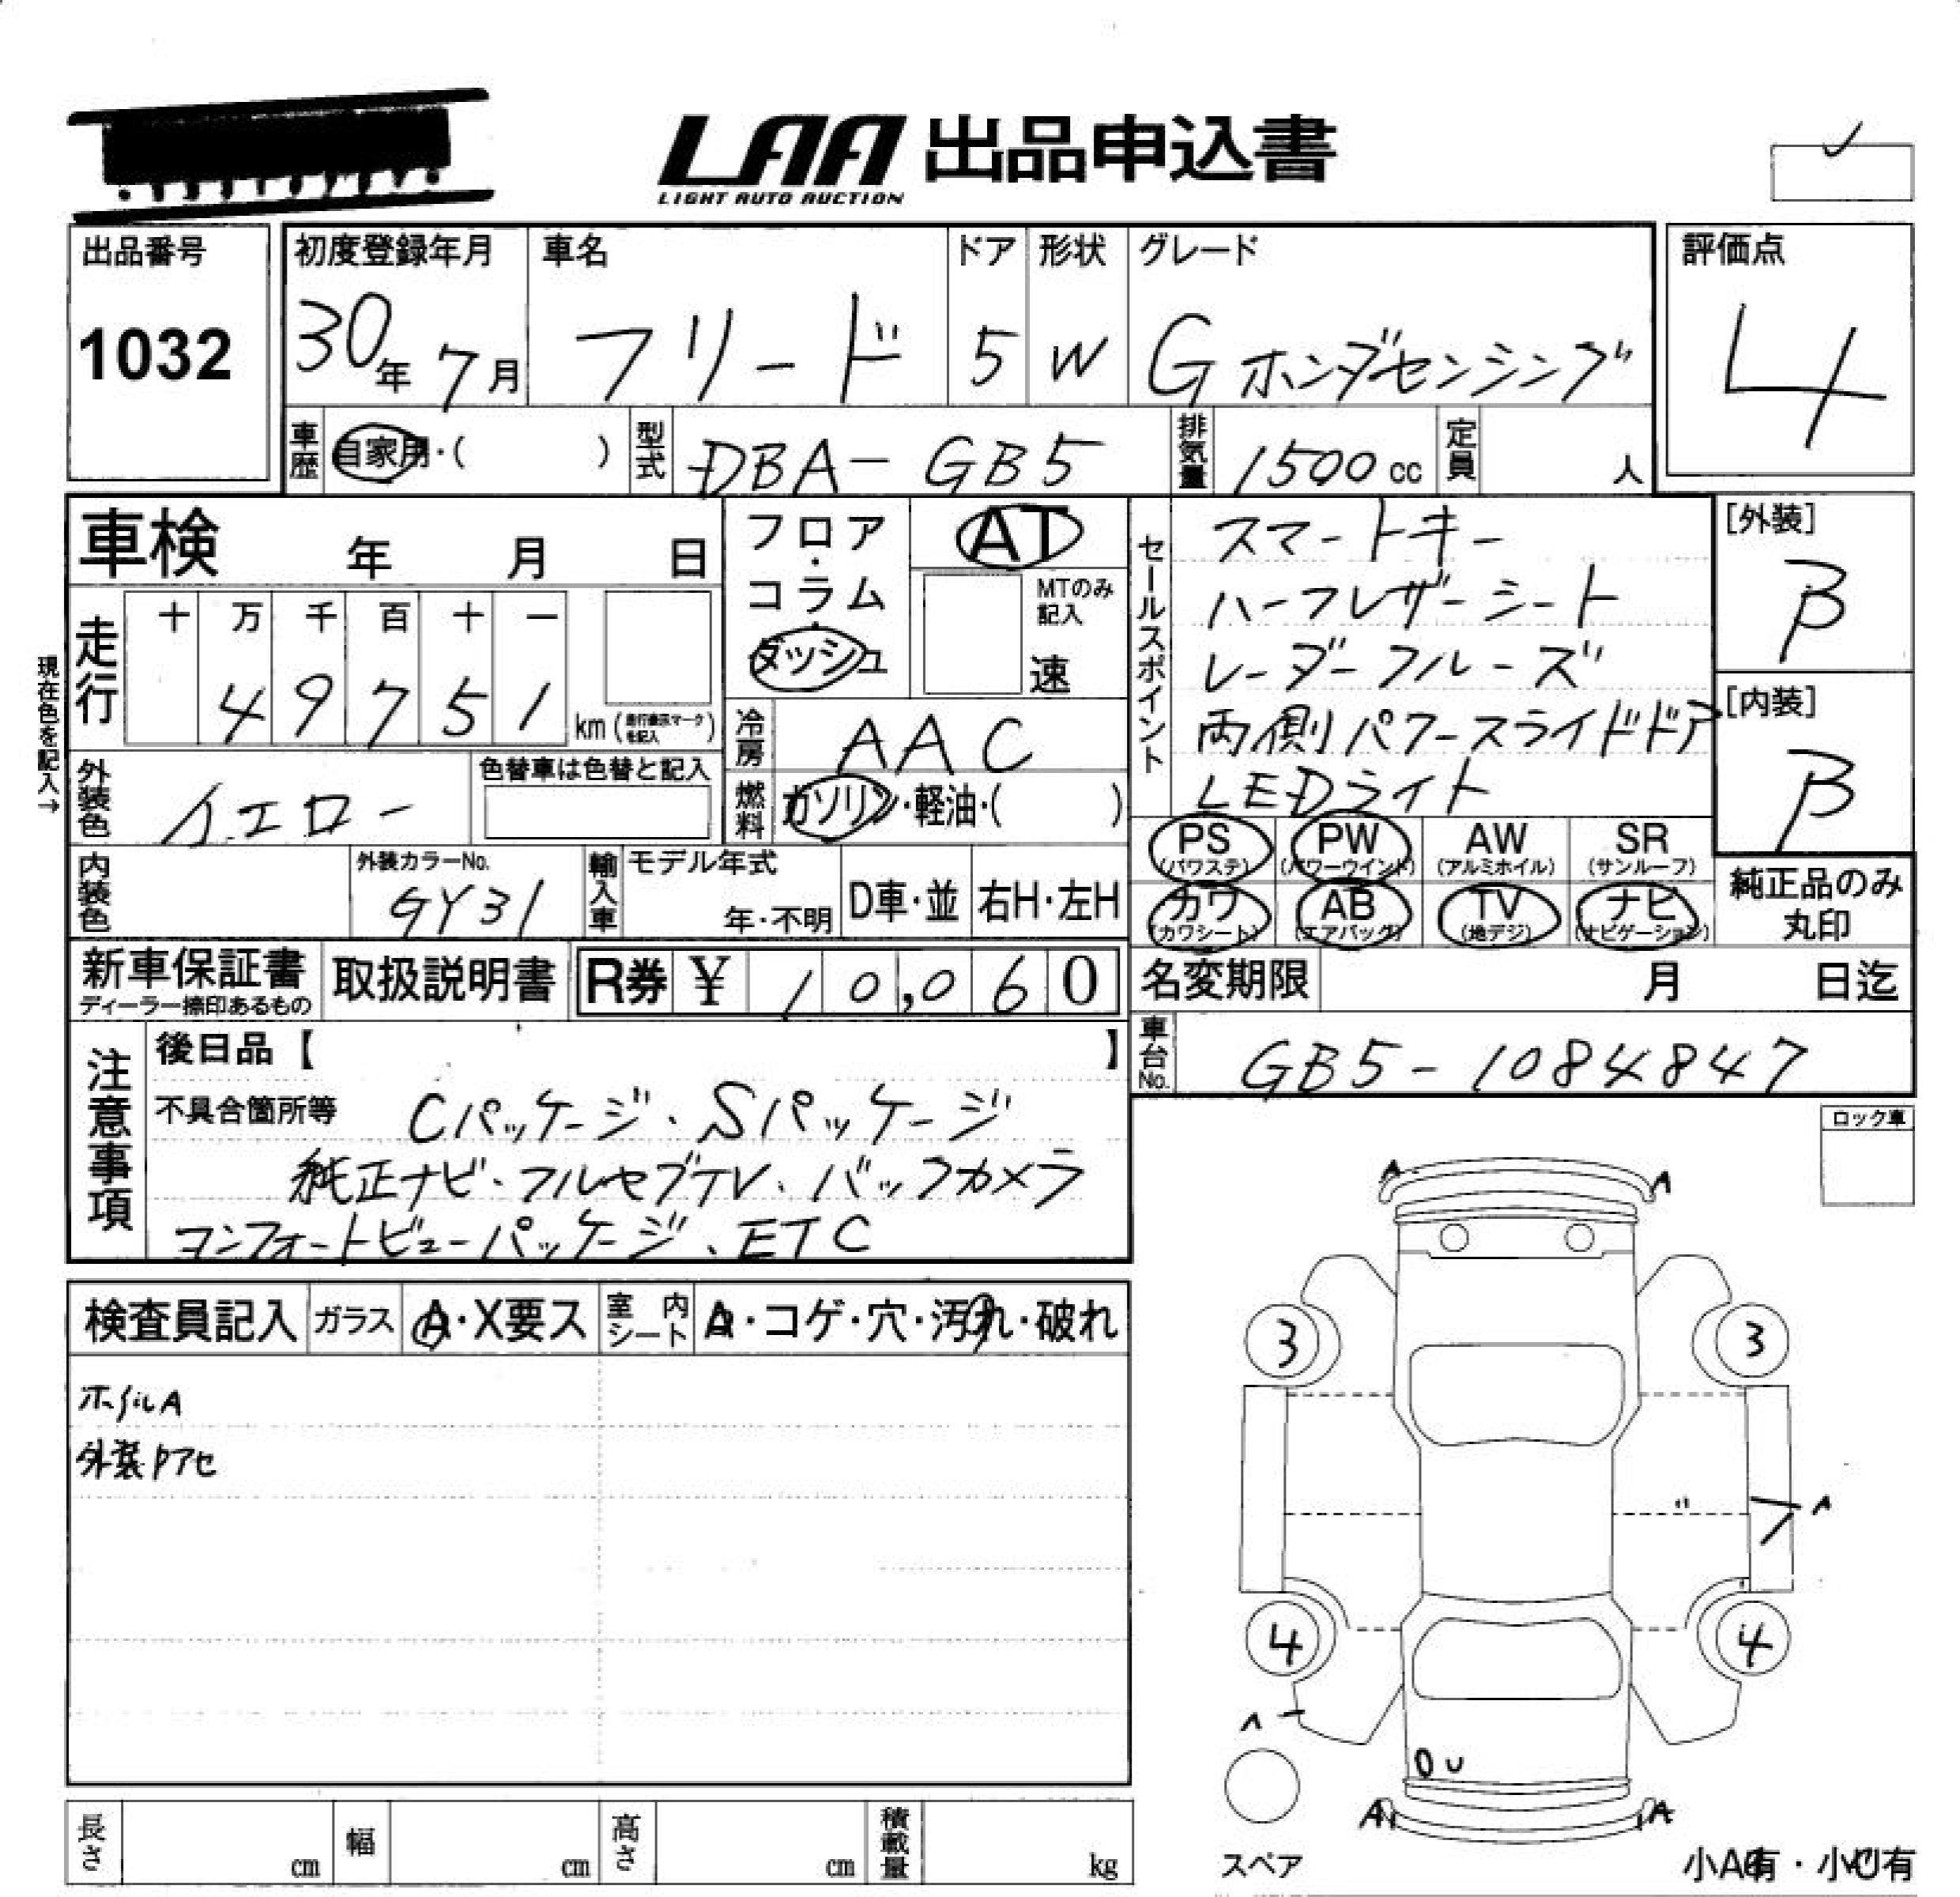 LAA 出品申込書
LIGHT AUTO AUCTION
出品番号
1032
初度登録年月
30年 7月
車名
フリード
ドア
5
形状
W
グレード
G ホンダセンシング
評価点
4
車歴 自家用・( )
型式 DBA-GB5
排気量 1500cc
定員 人
車検 年 月 日
フロア・コラム・ダッシュ
AT
MTのみ記入
速
セールスポイント
スマートキー
ハーフレザーシート
レーダークルーズ
両側パワースライドドア
LEDライト
[外装]
β
[内装]
β
現在色を記入→
走行
十 万 千 百 十 一
4 9 7 5 1 km (走行表示マークを記入)
冷房 AAC
外装色 イエロー
色替車は色替と記入
燃料 ガソリン・軽油・( )
PS (パワステ)
PW (パワーウインド)
AW (アルミホイル)
SR (サンルーフ)
カワ (カワシート)
AB (エアバッグ)
TV (地デジ)
ナビ (ナビゲーション)
純正品のみ丸印
内装色
外装カラーNo.
GY31
輸入車
モデル年式
年・不明
D車・並
右H・左H
新車保証書
ディーラー捺印あるもの
取扱説明書
R券 ¥ 10,060
名変期限 月 日迄
車台No. GB5-1084847
注意事項
後日品【 】
不具合箇所等 Cパッケージ、Sパッケージ
純正ナビ・フルセグTV、バックカメラ
コンフォートビューパッケージ、ETC
ロック車
検査員記入
ガラス A・X要ス
室内シート A・コゲ・穴・汚れ・破れ
ホイルA
A A
3 3
A
4 4
U
A A
スペア
小A有・小U有
長さ cm
幅 cm
高さ cm
積載量 kg